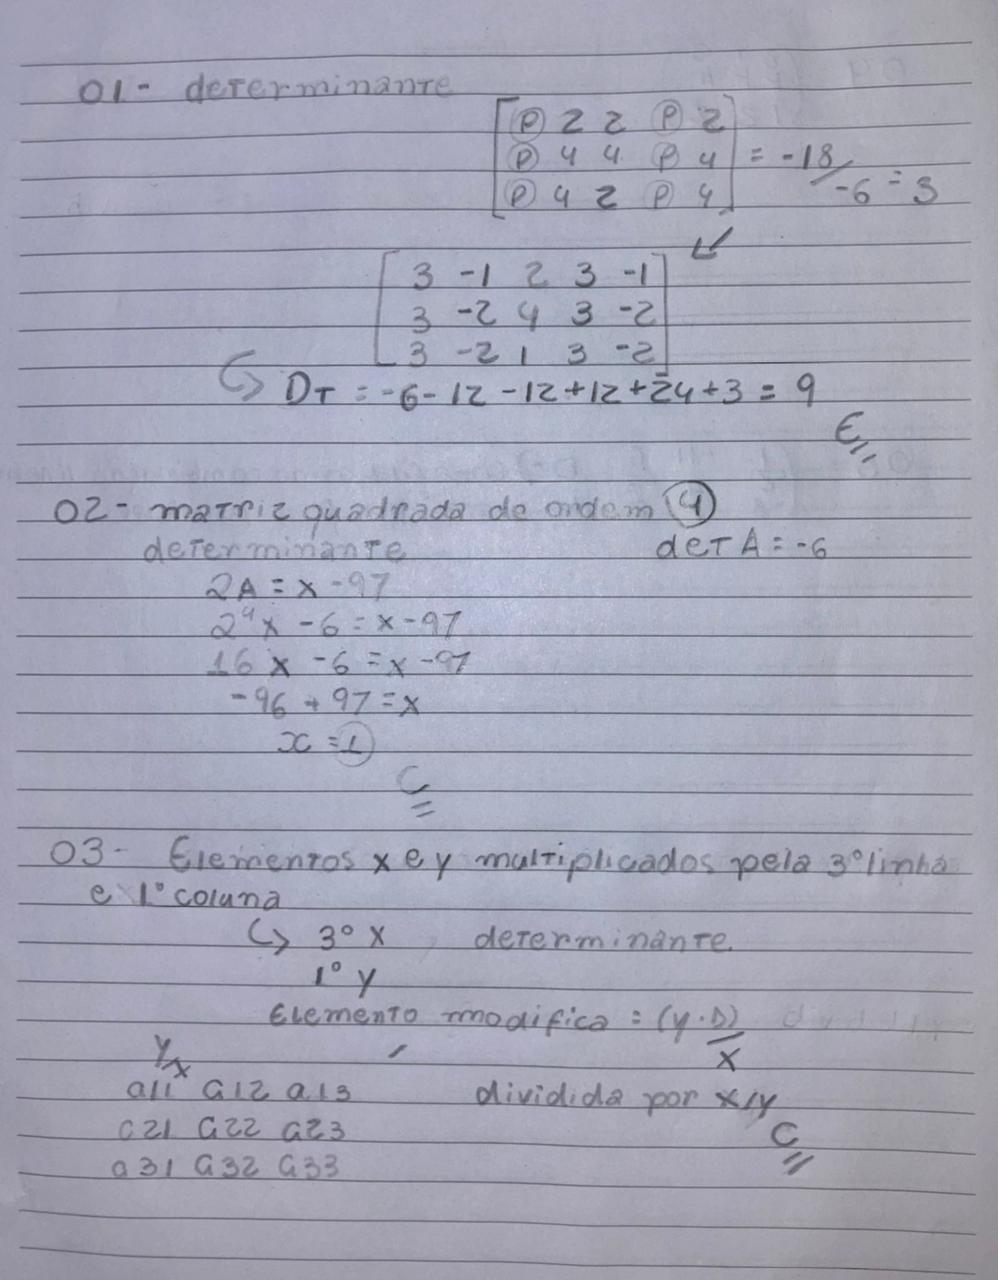 01- determinante
P 2 2 P 2
P 4 4 P 4 = -18/-6 = 3
P 4 2 P 4
3 -1 2 3 -1
3 -2 4 3 -2
3 -2 1 3 -2
↳ DT = -6-12-12+12+24+3 = 9
E
02- matriz quadrada de ordem 4
determinante det A = -6
2A = x -97
2⁴x -6 = x -97
16 x -6 = x -97
-96 + 97 = x
x = 1
C
03- Elementos x e y multiplicados pela 3° linha
e 1° coluna
↳ 3° x determinante
1° y
Elemento modifica = (y.D)/x
y/x
a11 a12 a13 dividida por x/y
a21 a22 a23 C
a31 a32 a33